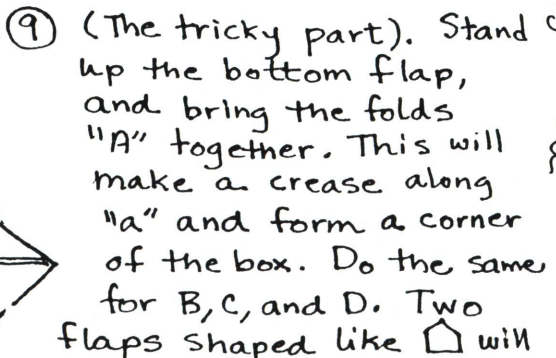 ⑨ (The tricky part). Stand
up the bottom flap,
and bring the folds
"A" together. This will
make a crease along
"a" and form a corner
of the box. Do the same
for B, C, and D. Two
flaps shaped like ⌂ will